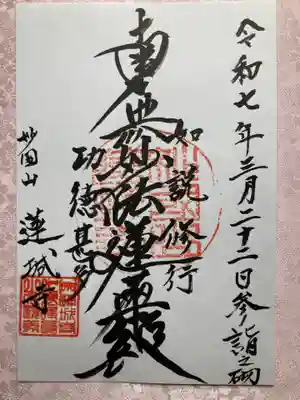 令和七年三月二十二日参詣之砌
如説修行
南無妙法蓮華経
功徳甚多
妙因山
蓮城寺